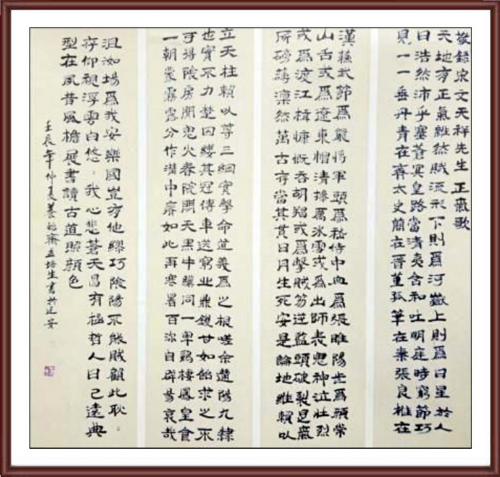 敬録宋文天祥先生正氣歌
天地有正氣雜然賦流形下則爲河嶽上則爲日星於人
曰浩然沛乎塞蒼冥皇路當清夷含和吐明庭時窮節乃
見一一垂丹青在齊太史簡在晉董狐筆在秦張良椎在
漢蘇武節爲嚴將軍頭爲嵇侍中血爲張睢陽齒爲顔常
山舌或爲遼東帽清操厲冰雪或爲出師表鬼神泣壯烈
或爲渡江楫慷慨吞胡羯或爲擊賊笏逆豎頭破裂是氣
所磅礴凜然萬古存當其貫日月生死安足論地維賴以
立天柱賴以尊三綱實繫命道義爲之根嗟余遘陽九隸
也實不力楚囚纓其冠傳車送窮北鼎鑊甘如飴求之不
可得陰房闃鬼火春院閟天黑牛驥同一皁鷄棲鳳凰食
一朝蒙霧露分作溝中瘠如此再寒暑百沴自辟易哀哉
沮洳場爲我安樂國豈有他繆巧陰陽不能賊顧此耿〻
存仰視浮雲白悠〻我心悲蒼天曷有極哲人日已遠典
型在夙昔風檐展書讀古道照顔色
壬辰年仲夏養齋孟培生書於延安